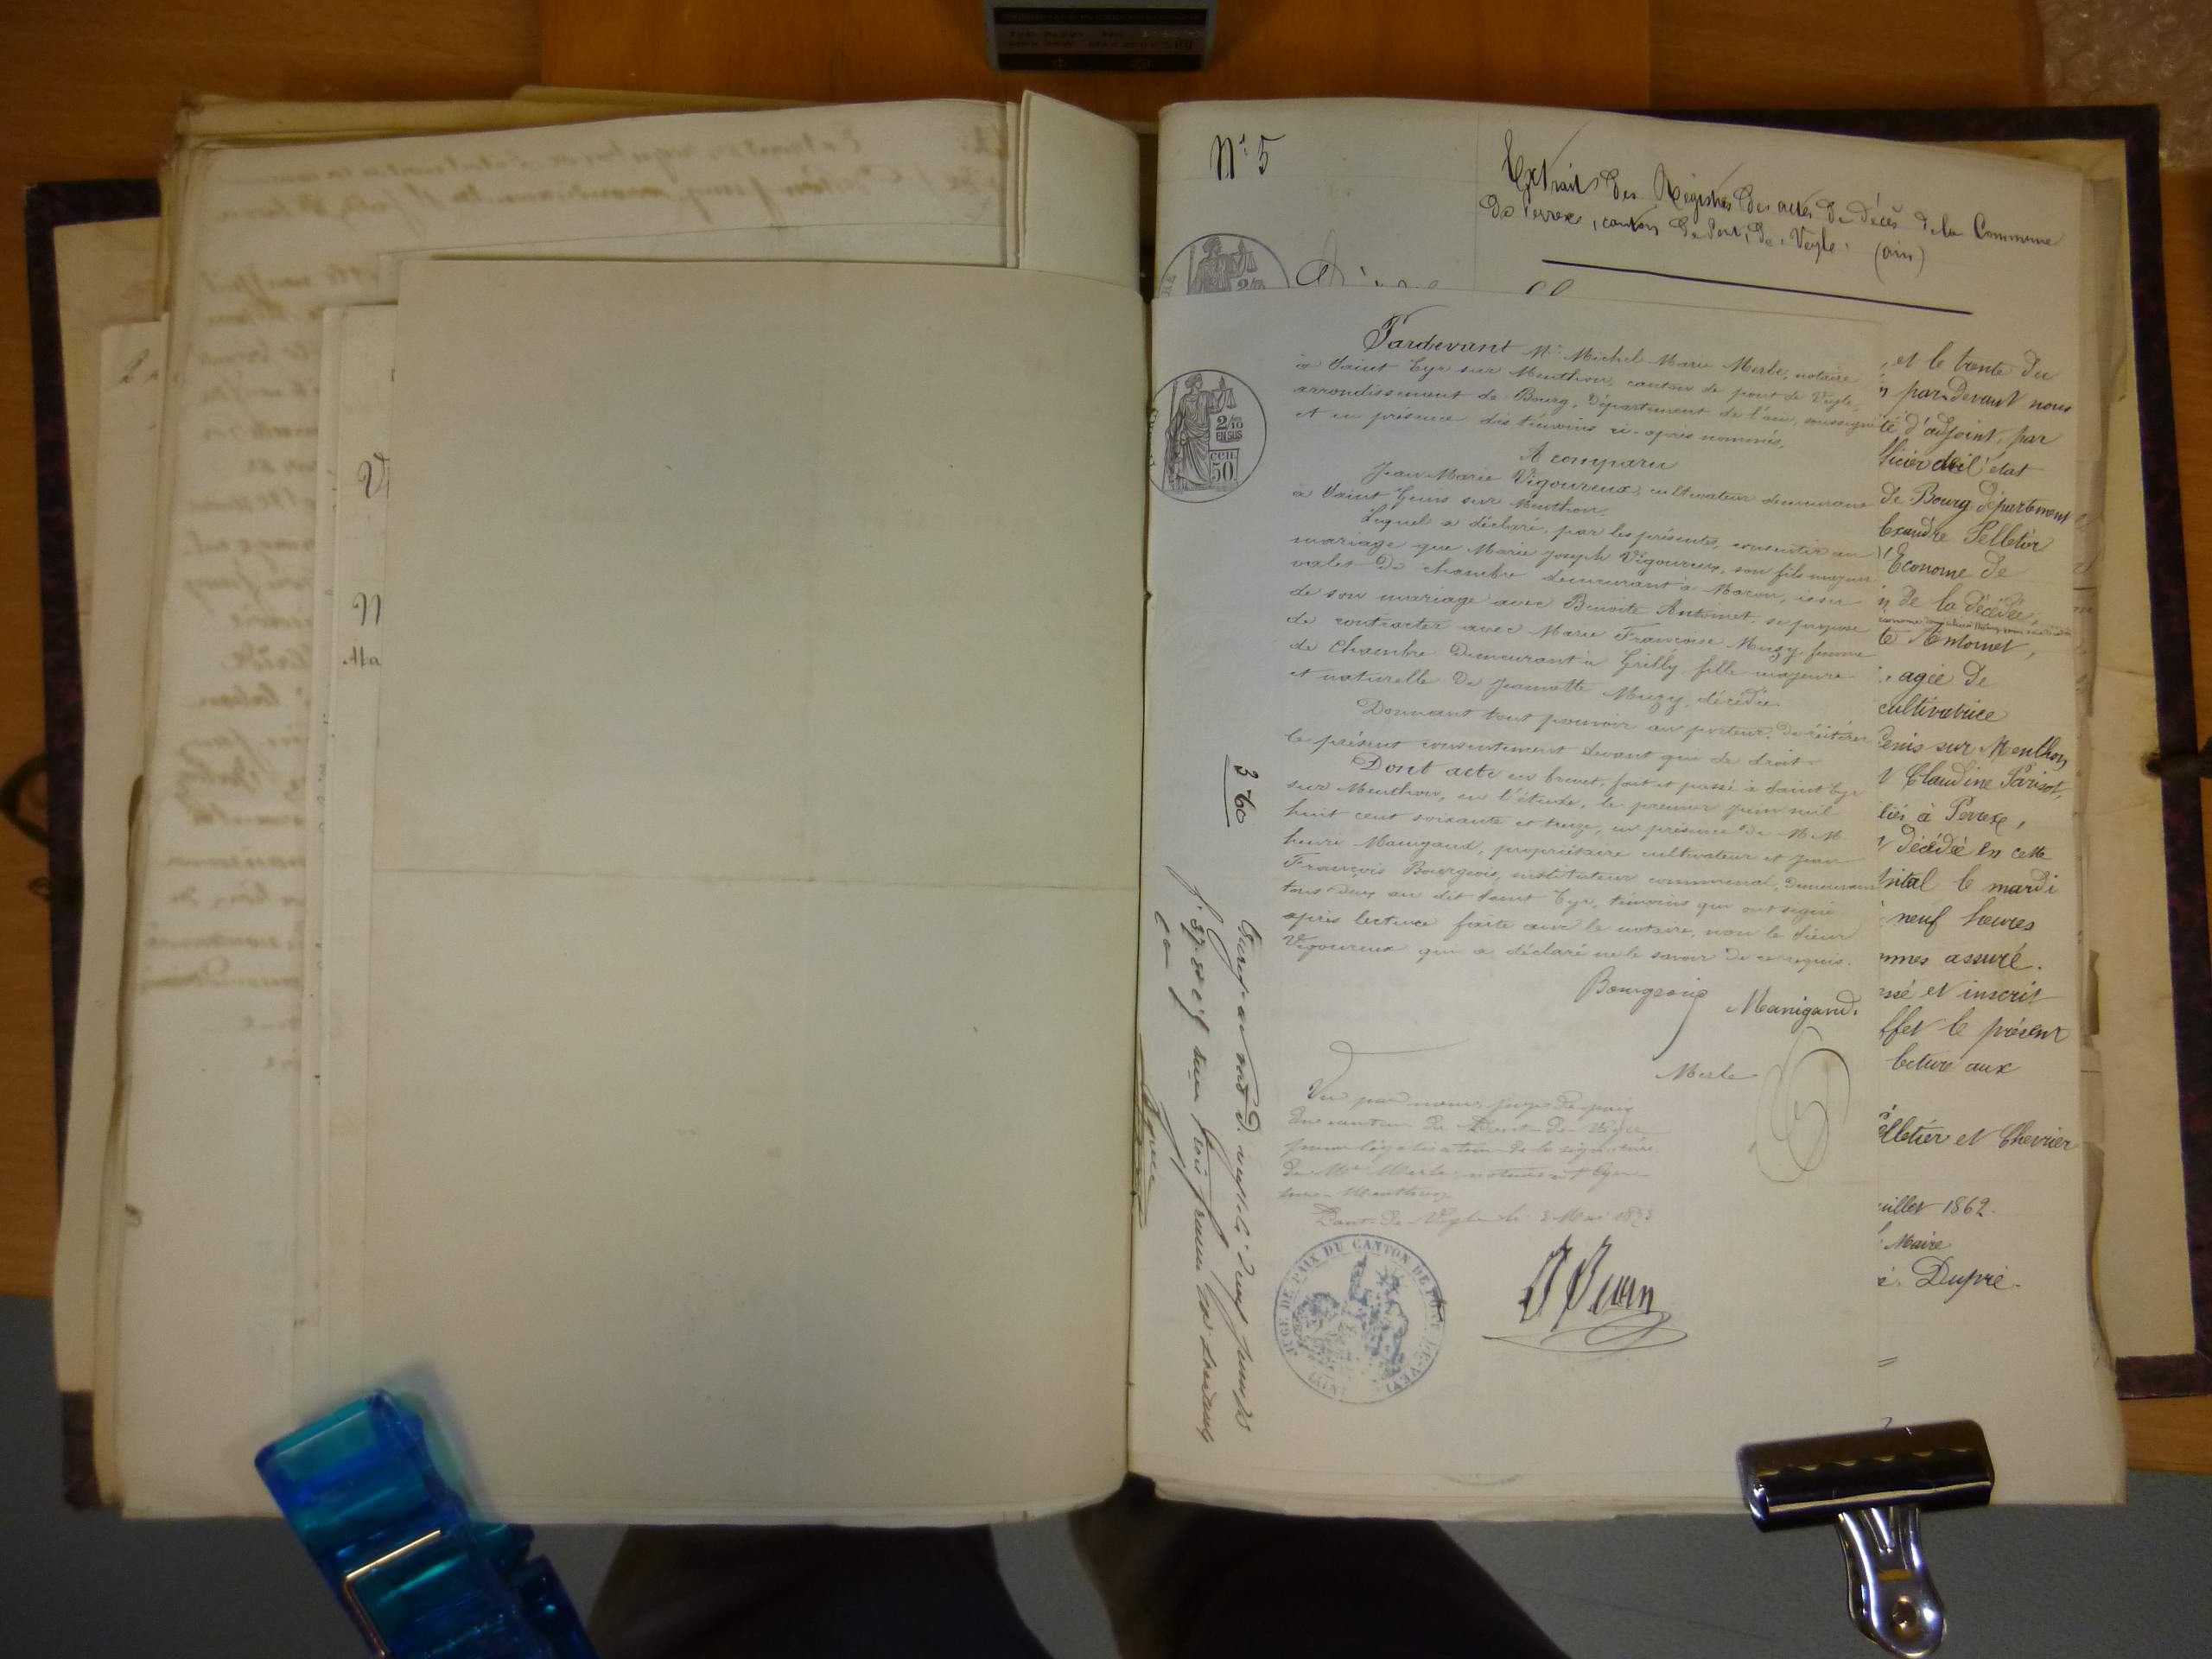 N° 5
Extrait des Registres des actes de décès de la Commune
de Perrex, canton de Pont-de-Veyle. (ain)
Pardevant Me Michel Marie Merle, notaire
à Saint Cyr sur Menthon, canton de pont de Veyle,
arrondissement de Bourg, Département de l'ain, soussigné
et en présence des témoins ci-après nommés,
A comparu
Jean Marie Vigoureux, cultivateur demeurant
à Saint Genis sur Menthon.
Lequel a déclaré, par les présentes, consentir au
mariage que Marie Joseph Vigoureux, son fils majeur
valet de chambre demeurant à Macon, issu
de son mariage avec Benoite Antoinet, se propose
de contracter avec Marie Françoise Muzy, femme
de Chambre Demeurant à Grilly, fille majeure
et naturelle de Jeannette Muzy, décédée.
Donnant tout pouvoir au porteur de réitérer
le présent consentement devant qui de droit.
Dont acte en brevet, fait et passé à Saint Cyr
sur Menthon, en l'étude, le premier juin mil
huit cent soixante et treize, en présence de M M
henri Manigand, propriétaire cultivateur et jean
François Bourgeois, instituteur communal, Demeurant
tous deux au dit Saint Cyr, témoins qui ont signé
après lecture faite avec le notaire, non le sieur
Vigoureux qui a déclaré ne le savoir de ce requis.
Bourgeois
Manigand.
Merle
Vu par nous, juge de paix
du canton de Pont-de-Veyle
pour légalisation de la signature
de Me Merle, notaire à St Cyr
sur-Menthon
Pont-de-Veyle le 3 Mai 1873
JUGE DE PAIX DU CANTON DE PONT-DE-VEYLE
(AIN)
3 60
2/10
EN SUS
50 cen.
, et le trente du
n par-Devant nous
té d'adjoint, par
ficier de l'état
de Bourg département
lexandre Pelletier
l'Econome de
n de la décédée,
te Antoinet,
agée de
cultivatrice
Genis sur Menthon
t Claudine Parisot,
liés à Perrex,
t décédé en cette
pital le mardi
neuf heures
mmes assuré.
ssé et inscrit
ffet le présent
lecture aux
elletier et Chevrier
uillet 1862.
Maire
é. Dupré.